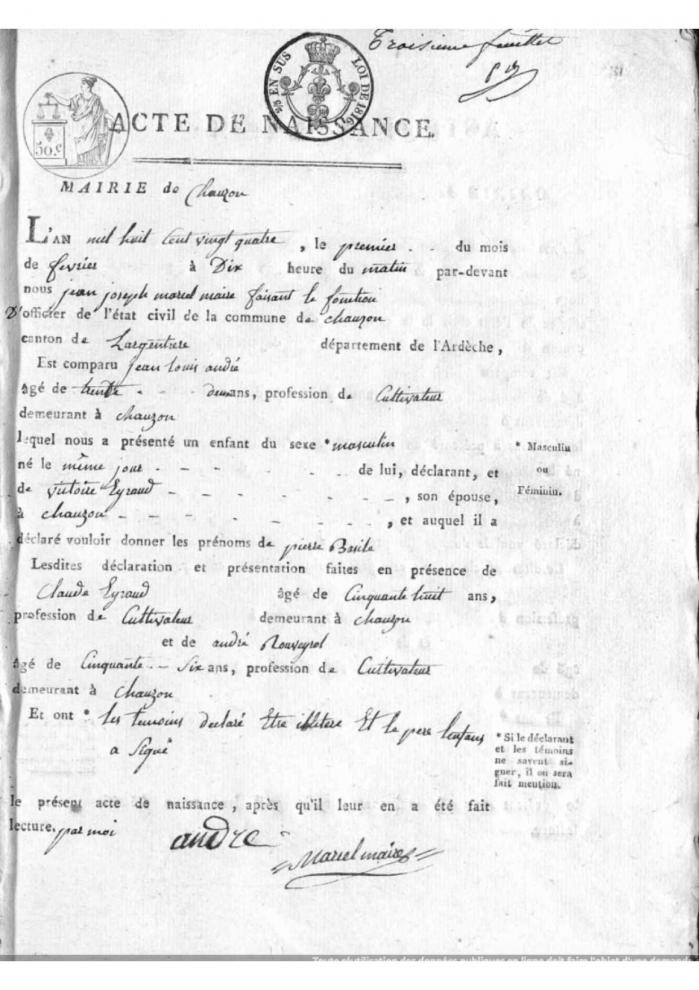 Troisieme feuillet
EN SUS LOI DE 1816
50.c
ACTE DE NAISSANCE.
MAIRIE de Chauzon
L'AN mil huit cent vingt quatre , le premier - - du mois
de fevrier à Dix heure du matin par-devant
nous jean joseph marcel maire faisant le fonction
D'officier de l'état civil de la commune de chauzon
canton de Largentiere département de l'Ardèche,
Est comparu jean louis andré
âgé de trente - - - deux ans, profession de Cultivateur
demeurant à chauzon
lequel nous a présenté un enfant du sexe * masculin
* Masculin
ou
Féminin.
né le même jour - - - - - - de lui, déclarant, et
de victoire Eyraud - - - - - - , son épouse,
à chauzon - - - - - - , et auquel il a
déclaré vouloir donner les prénoms de pierre Basile
Lesdites déclaration et présentation faites en présence de
Claude Eyraud âgé de Cinquante huit ans,
profession de Cultivateur demeurant à chauzon
et de andré Rouveyrol
âgé de Cinquante - - six ans, profession de Cultivateur
demeurant à Chauzon
Et ont * les temoins declaré Etre illitere Et le pere
a signé
* Si le déclarant
et les témoins
ne savent si-
gner, il en sera
fait mention.
le présent acte de naissance, après qu'il leur en a été fait
lecture. par moi
andre
Marcel maire
Toute réutilisation des données publiques en ligne doit faire l'objet d'une demande